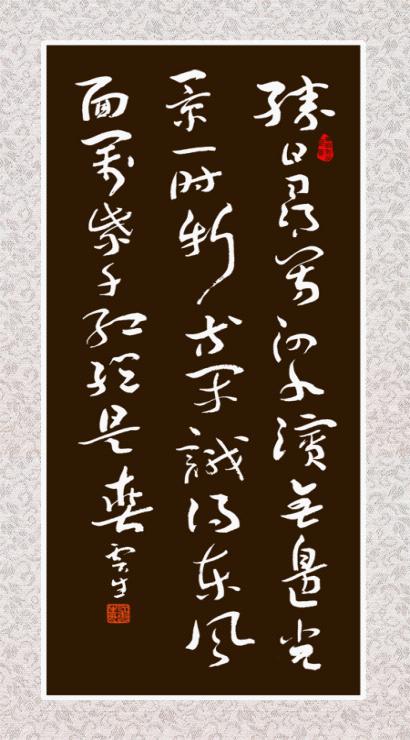 勝日尋芳泗水濱無邊光
景一时新等閒識得東風
面萬紫千紅總是春
雲生